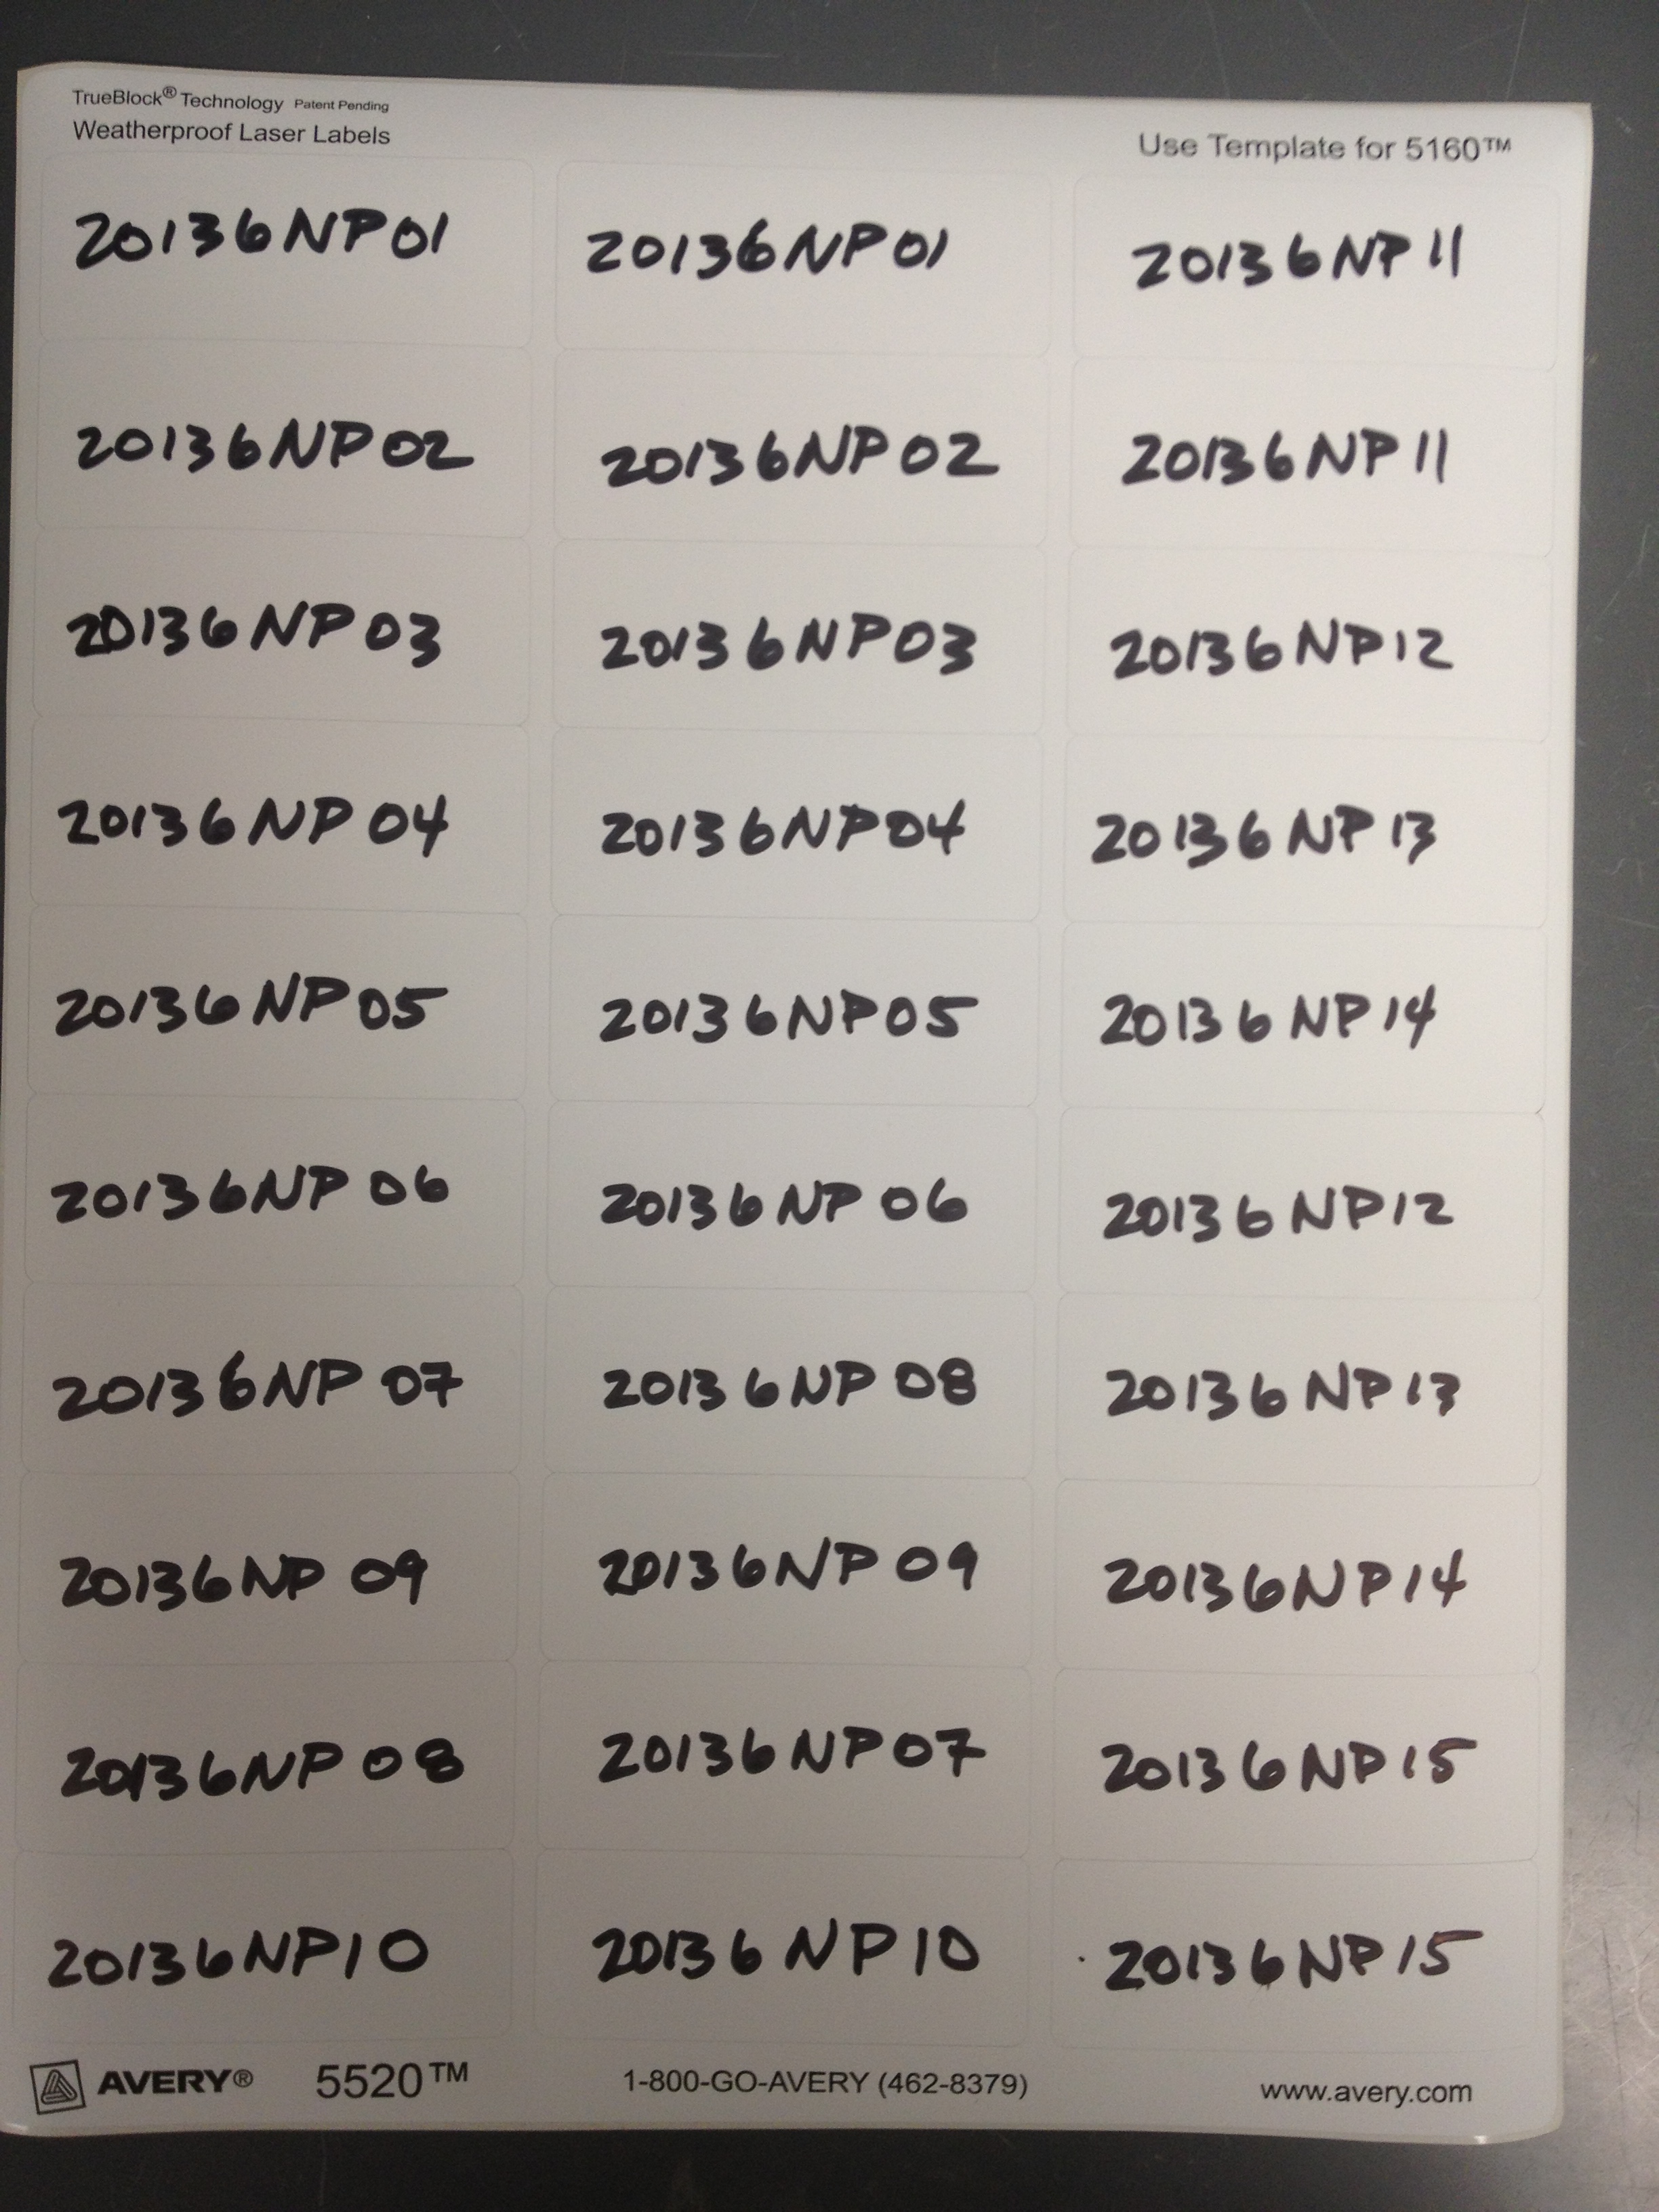 TrueBlock® Technology Patent Pending
Weatherproof Laser Labels
Use Template for 5160™
20136NP01 20136NP01 20136NP11
20136NP02 20136NP02 20136NP11
20136NP03 20136NP03 20136NP12
20136NP04 20136NP04 20136NP13
20136NP05 20136NP05 20136NP14
20136NP06 20136NP06 20136NP12
20136NP07 20136NP08 20136NP13
20136NP09 20136NP09 20136NP14
20136NP08 20136NP07 20136NP15
20136NP10 20136NP10 20136NP15
AVERY® 5520™ 1-800-GO-AVERY (462-8379) www.avery.com